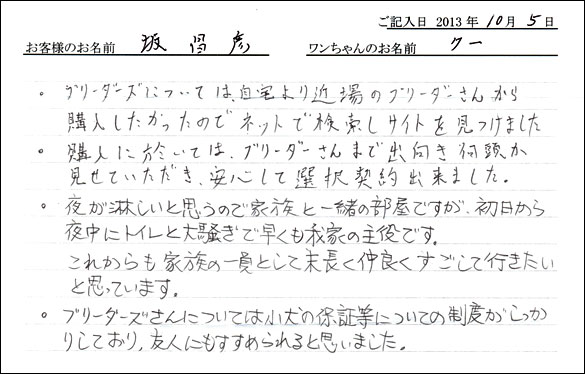 ご記入日 2013年 10月 5日
お客様のお名前 坂 昌彦 ワンちゃんのお名前 クー
。ブリーダーズについては、自宅より近場のブリーダーさんから
購入したかったのでネットで検索しサイトを見つけました
。購入に於いては、ブリーダーさんまで出向き何頭か
見せていただき、安心して選択契約出来ました。
。夜が淋しいと思うので家族と一緒の部屋ですが、初日から
夜中にトイレと大騒ぎで早くも我家の主役です。
これからも家族の一員として末長く仲良くすごして行きたい
と思っています。
。ブリーダーズさんについては小犬の保証等についての制度がしっか
りしており、友人にもすすめられると思いました。